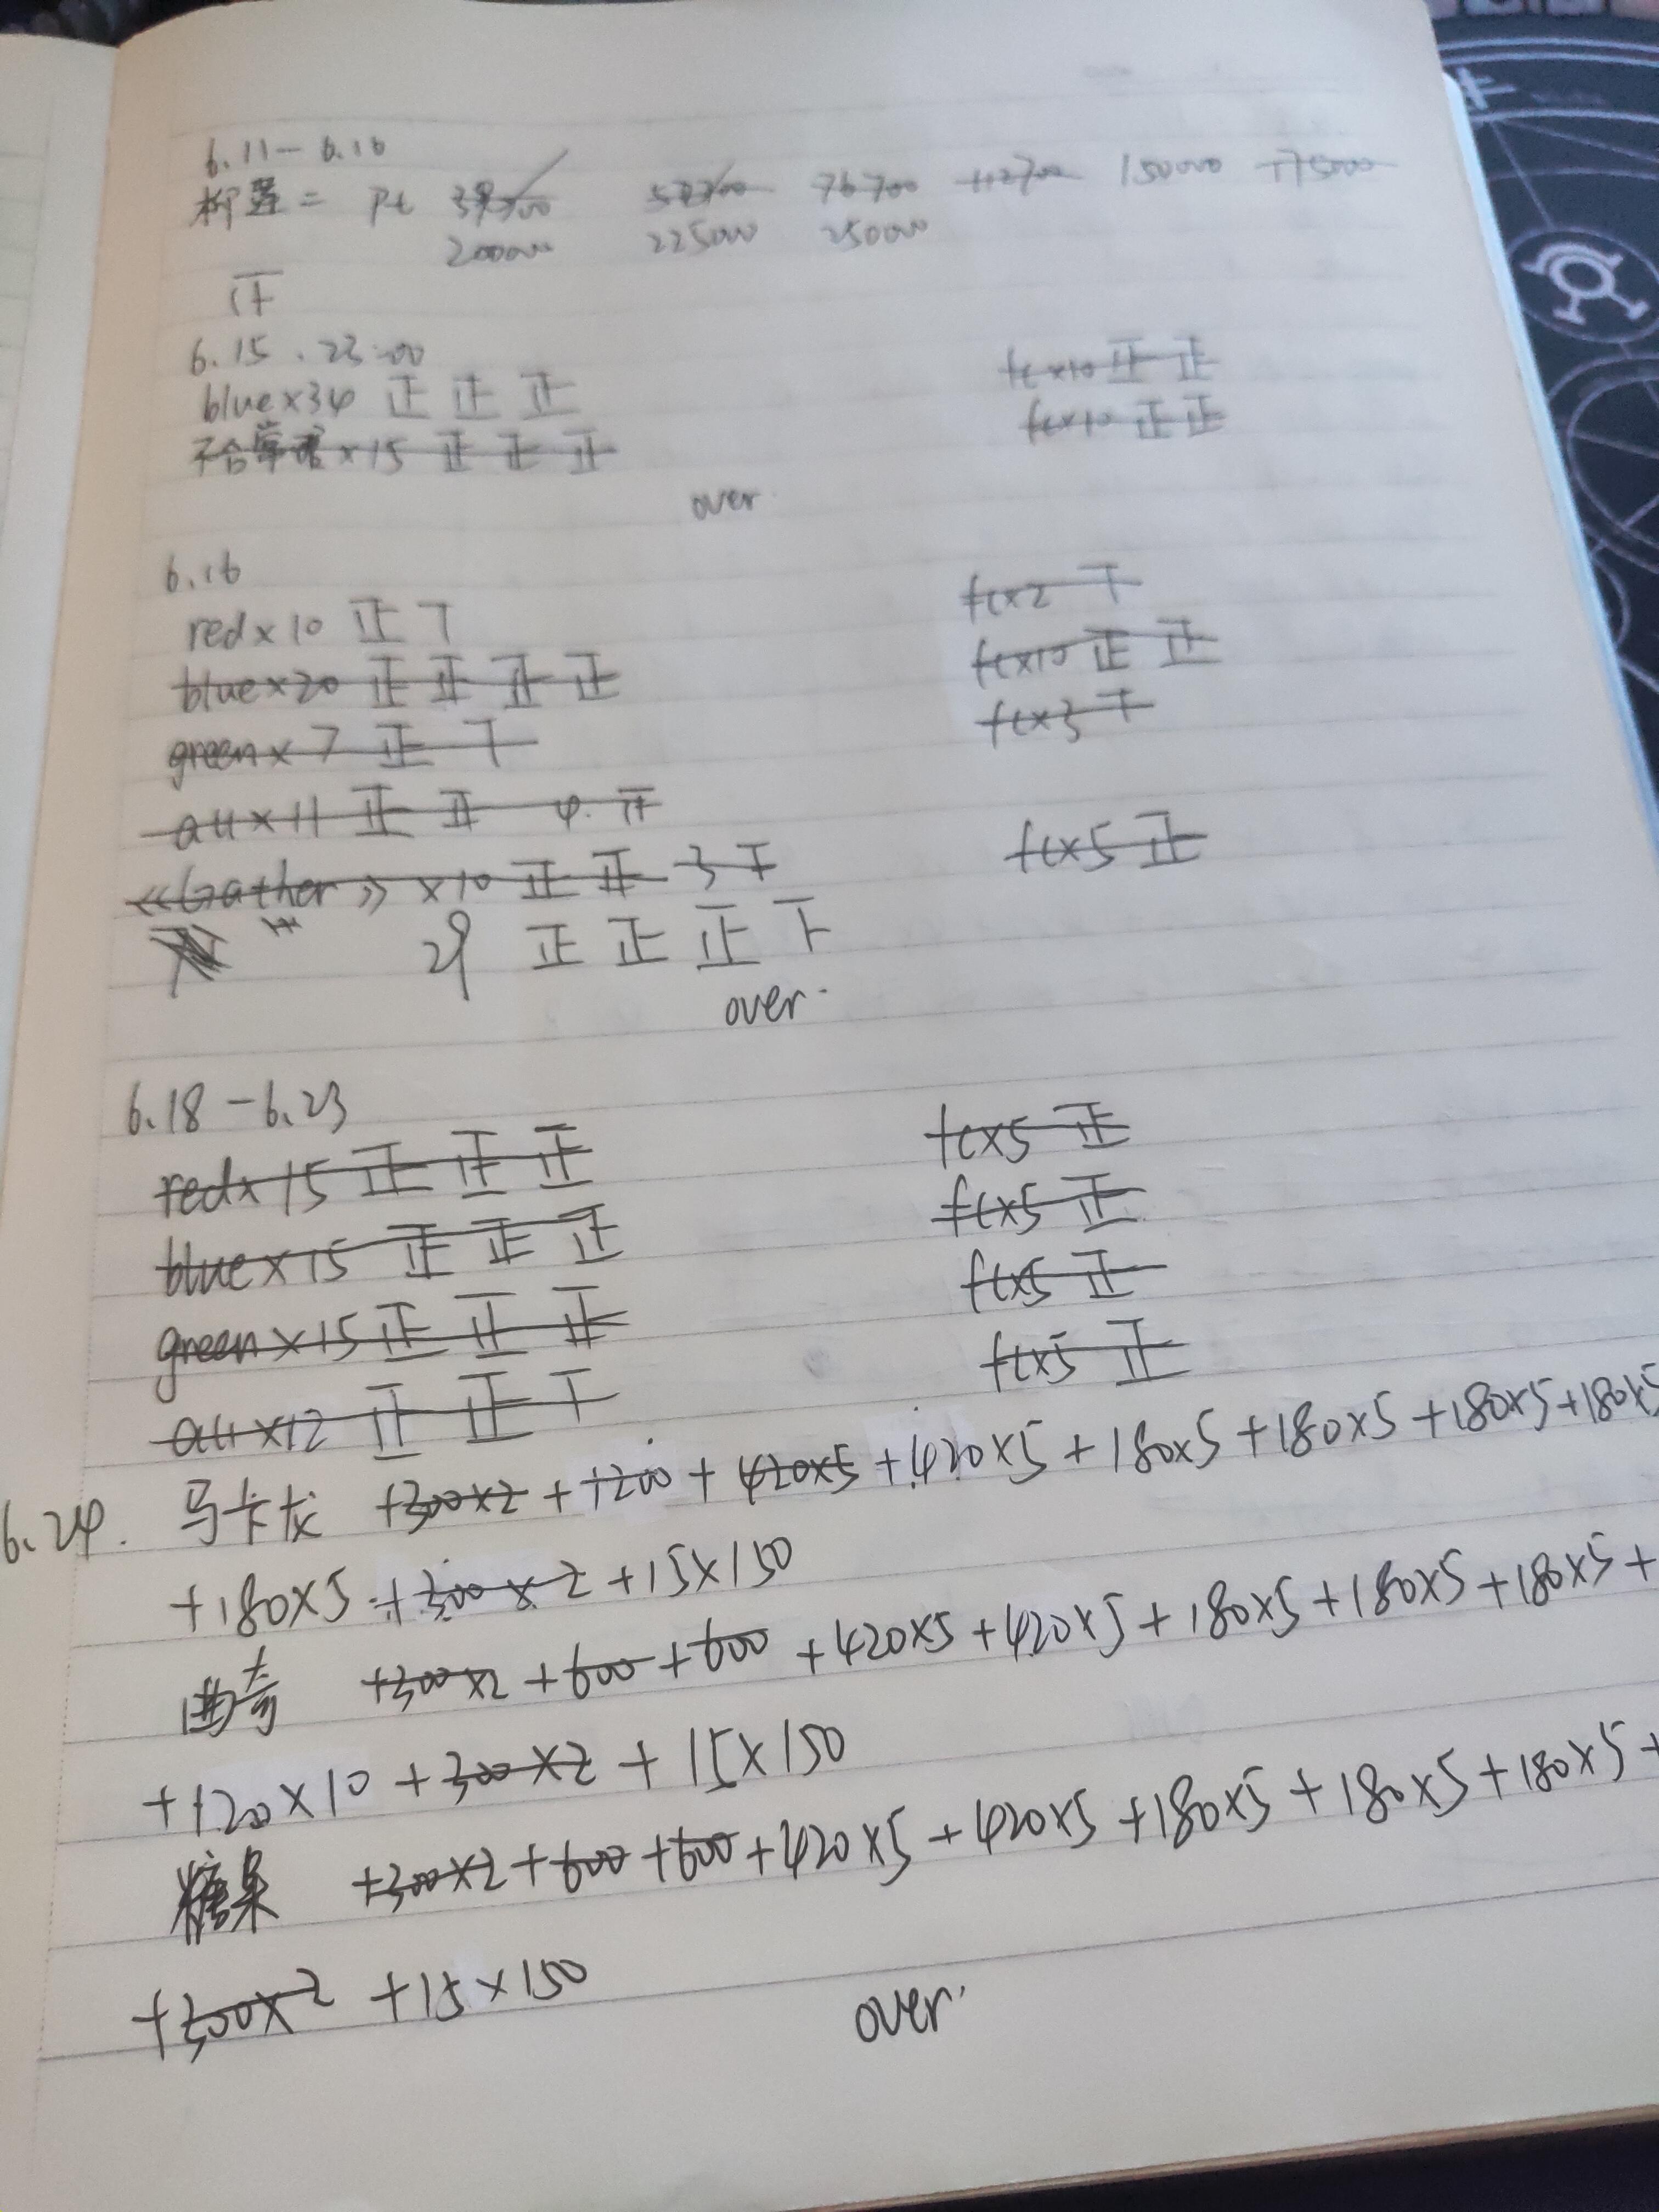 6.11-6.16
柳墨= pt 39700 57700 76700 112700 150000 175000
200000 225000 250000
正
6.15.23:00
blue×34 正 正 正 fc×10 正 正
不合常理×15 正 正 正 fc×10 正 正
over.
6.16
red×10 正 丅 fc×2 丅
blue×20 正 正 正 正 fc×10 正 正
green×7 正 丅 fc×3 下
all×11 正 正 4. 正
《Gather》×10 正 正 3 下 fc×5 正
29 正 正 正 下
over.
6.18-6.23
red×15 正 正 正 fc×5 正
blue×15 正 正 正 fc×5 正
green×15 正 正 正 fc×5 正
all×12 正 正 丅 fc×5 正
6.24. 马卡龙 +300×2 +1200 + 420×5 +420×5 +180×5 +180×5 +180×5 +180×5
+180×5 +300×2 +15×150
曲奇 +300×2 +600 +600 +420×5 +420×5 +180×5 +180×5 +180×5 +
+120×10 +300×2 +15×150
糖果 +300×2 +600 +600 +420×5 +420×5 +180×5 +180×5 +180×5 +
+300×2 +15×150
over.